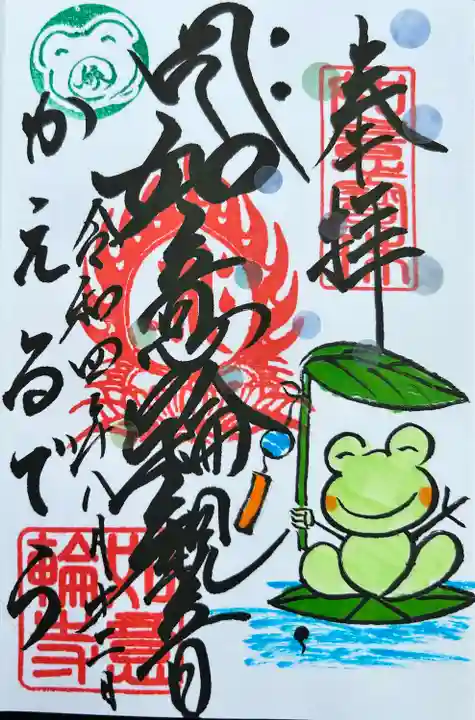 奉拝
如意輪観音
令和四年八月十二日
かえるでら
如意
輪寺